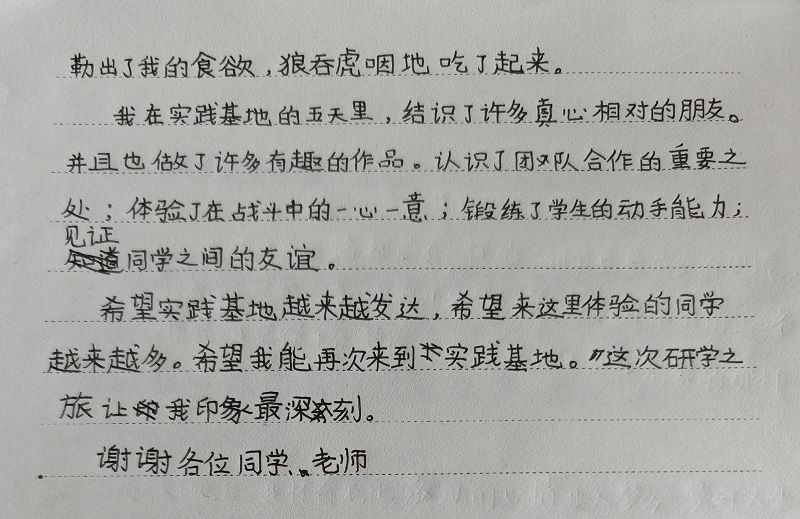 勒出了我的食欲，狼吞虎咽地吃了起来。
我在实践基地的五天里，结识了许多真心相对的朋友。
并且也做了许多有趣的作品。认识了团队合作的重要之
处；体验了在战斗中的一心一意；锻练了学生的动手能力；
见证
知道同学之间的友谊。
希望实践基地越来越发达，希望来这里体验的同学
越来越多。希望我能再次来到实践基地。"这次研学之
旅让我印象最深刻。
谢谢各位同学、老师